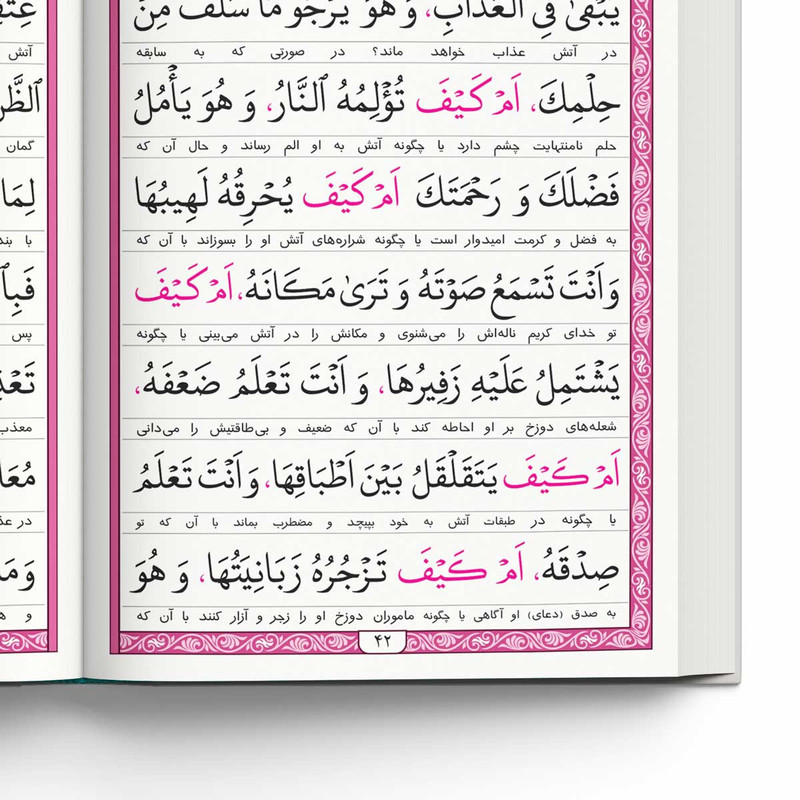 یَبْقیٰ فِی الْعَذابِ، وَ هُوَ یَرْجُو ما سَلَفَ مِنْ
در آتش عذاب خواهد ماند؟ در صورتی که به سابقه
حِلْمِكَ، اَمْ کَیْفَ تُؤْلِمُهُ ٱلنَّارُ، وَ هُوَ یَأْمُلُ
حلم نامنتهایت چشم دارد یا چگونه آتش به او الم رساند و حال آن که
فَضْلَكَ وَ رَحْمَتَكَ اَمْ کَیْفَ یُحْرِقُهُ لَهِیبُهَا
به فضل و کرمت امیدوار است یا چگونه شراره‌های آتش او را بسوزاند با آن که
وَ اَنْتَ تَسْمَعُ صَوْتَهُ وَ تَرَیٰ مَکَانَهُ، اَمْ کَیْفَ
تو خدای کریم ناله‌اش را می‌شنوی و مکانش را در آتش می‌بینی یا چگونه
یَشْتَمِلُ عَلَیْهِ زَفِیرُهَا، وَ اَنْتَ تَعْلَمُ ضَعْفَهُ،
شعله‌های دوزخ بر او احاطه کند با آن که ضعیف و بی‌طاقتیش را می‌دانی
اَمْ کَیْفَ یَتَقَلْقَلُ بَیْنَ اَطْبَاقِهَا، وَ اَنْتَ تَعْلَمُ
یا چگونه در طبقات آتش به خود بپیچد و مضطرب بماند با آن که تو
صِدْقَهُ، اَمْ کَیْفَ تَزْجُرُهُ زَبَانِیَتُهَا، وَ هُوَ
به صدق (دعای) او آگاهی یا چگونه ماموران دوزخ او را زجر و آزار کنند با آن که
۴۲
آتش
گمان
لِمَا
با
پس
مُعَا
وَ